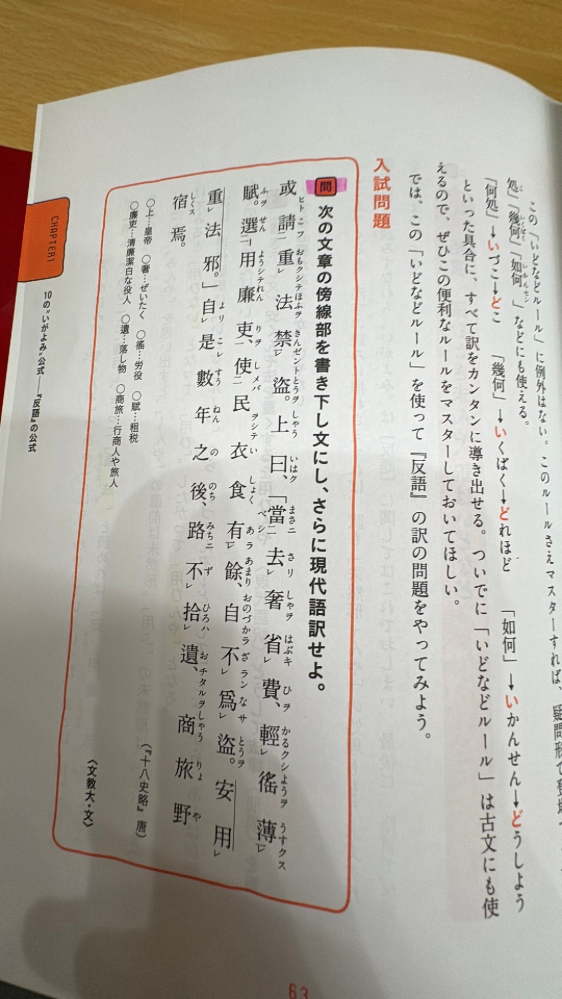 この「いどなどルール」に例外はない。このルールさえマスターすれば、疑問形で登場
処」「幾何」「如何」などにも使える。
「何処」→いづこ→どこ　「幾何」→いくばく→どれほど　「如何」→いかんせん→どうしよう
といった具合に、すべて訳をカンタンに導き出せる。ついでに「いどなどルール」は古文にも使
えるので、ぜひこの便利なルールをマスターしておいてほしい。
では、この「いどなどルール」を使って『反語』の訳の問題をやってみよう。
入試問題
問 次の文章の傍線部を書き下し文にし、さらに現代語訳せよ。
或請重法禁盗。上曰、「當去奢省費、輕徭薄
賦。選用廉吏、使民衣食有餘、自不爲盗。安用
重法邪。」自是數年之後、路不拾遺、商旅野
宿焉。
（『十八史略』唐）
○上…皇帝　○奢…ぜいたく　○徭…労役　○賦…租税
○廉吏…清廉潔白な役人　○遺…落し物　○商旅…行商人や旅人
〈文教大・文〉
CHAPTER1
10の“いがよみ”公式——『反語』の公式
63